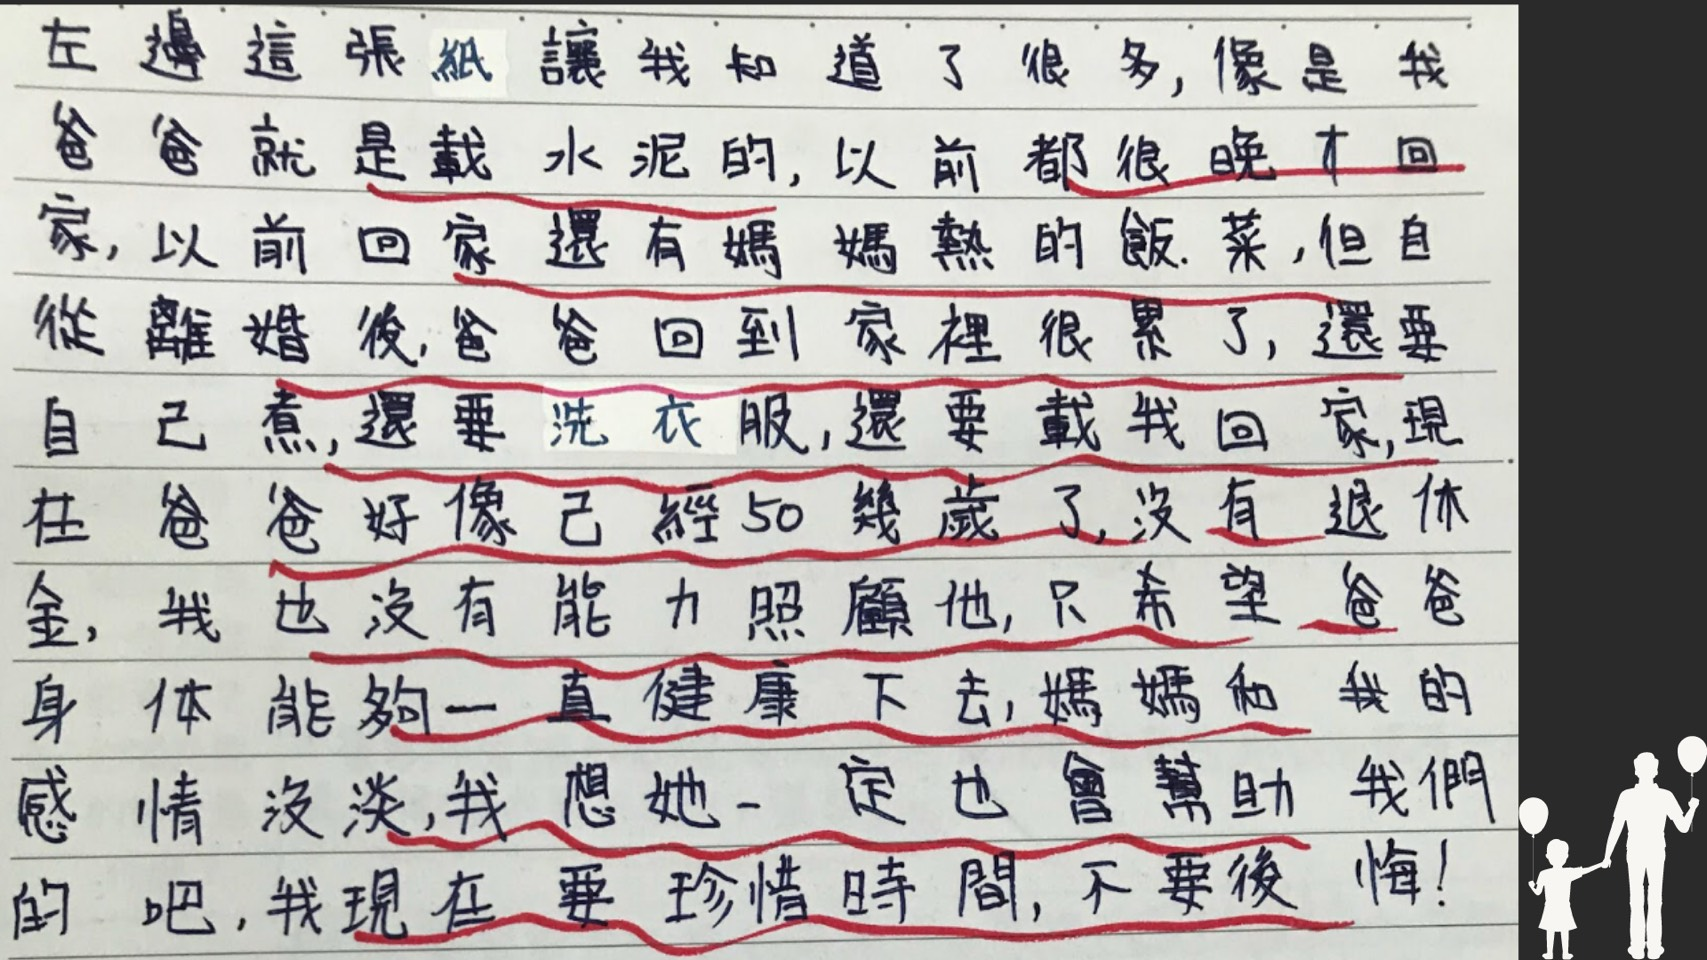 左邊這張紙讓我知道了很多,像是我
爸爸就是載水泥的,以前都很晚才回
家,以前回家還有媽媽熱的飯.菜,但自
從離婚後,爸爸回到家裡很累了,還要
自己煮,還要洗衣服,還要載我回家,現
在爸爸好像己經50幾歲了,沒有退休
金,我也沒有能力照顧他,只希望爸爸
身体能夠一直健康下去,媽媽和我的
感情沒淡,我想她一定也會幫助我們
的吧,我現在要珍惜時間,不要後悔!